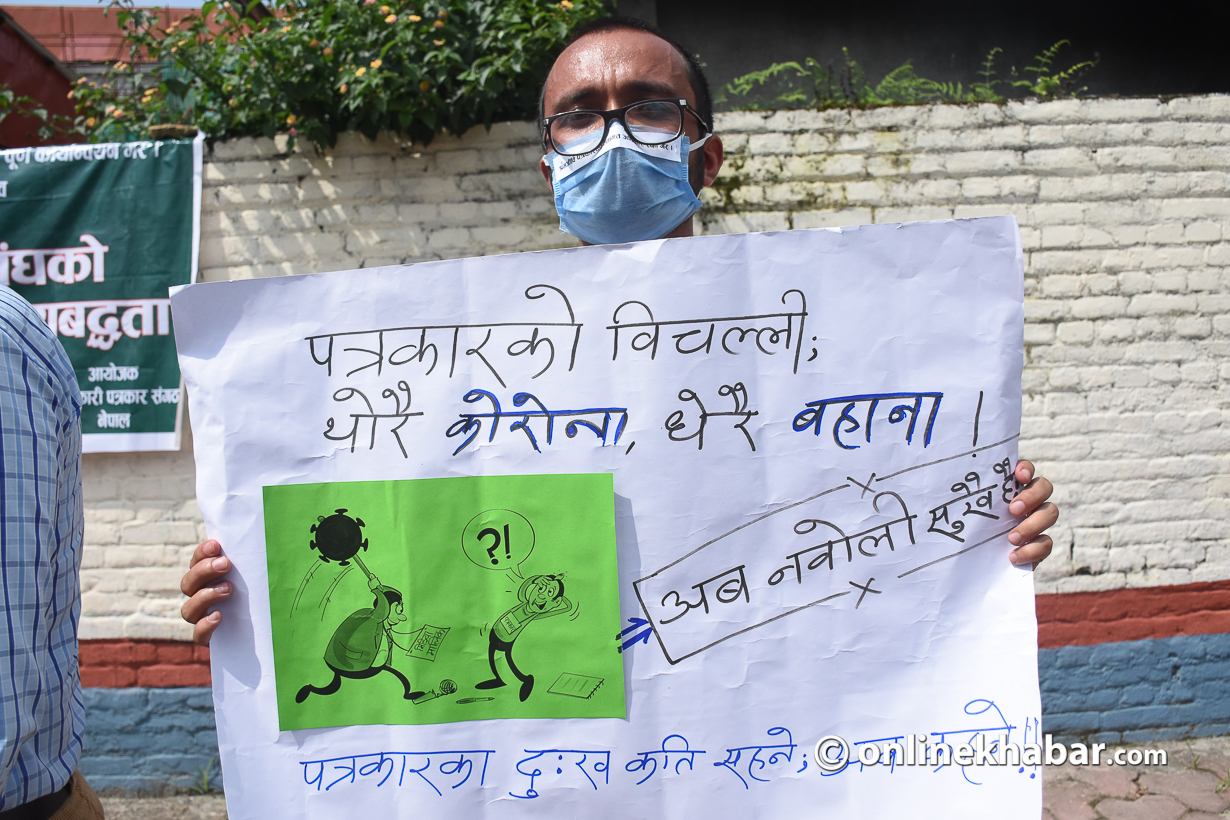 पूर्ण कार्यान्वयन गर
घको
बद्धता
आयोजक
कारी पत्रकार संगठ
नेपाल
पत्रकारको विचल्ली;
थोरै कोरोना, धेरै बहाना !
?!
अब नबोली सुखै छै
पत्रकारका दुःख कति सहने;
©onlinekhabar.com